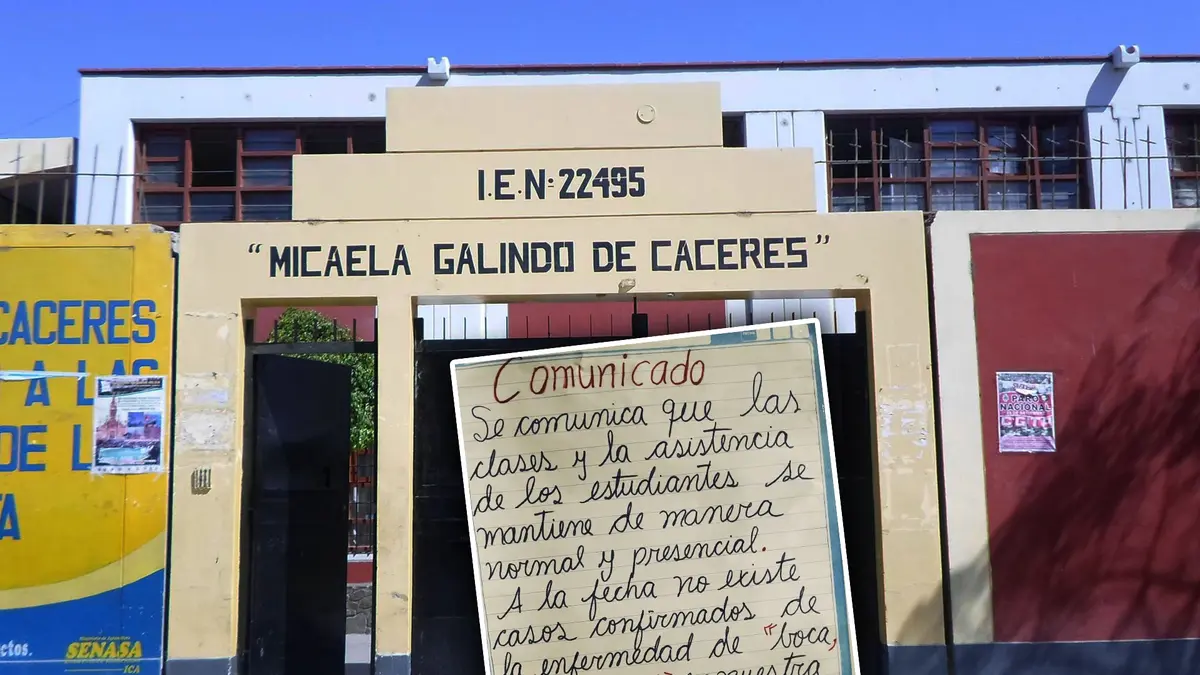 I.E.Nº 22495
“MICAELA GALINDO DE CACERES”
CACERES
A LAS
DE L
TA
ctos.
SENASA
ICA
PARO
NACIONAL
Comunicado
Se comunica que las
clases y la asistencia
de los estudiantes se
mantiene de manera
normal y presencial.
A la fecha no existe
casos confirmados de
la enfermedad de "boca,